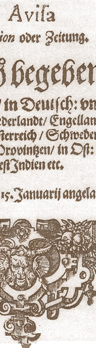 Avisa
ion oder Zeitung.
begeben
/ in Deutsch: vn
derlandt / Engellan
sterreich / Schweden
Provintzen / in Ost:
est Indien etc.
15. Januarij angela